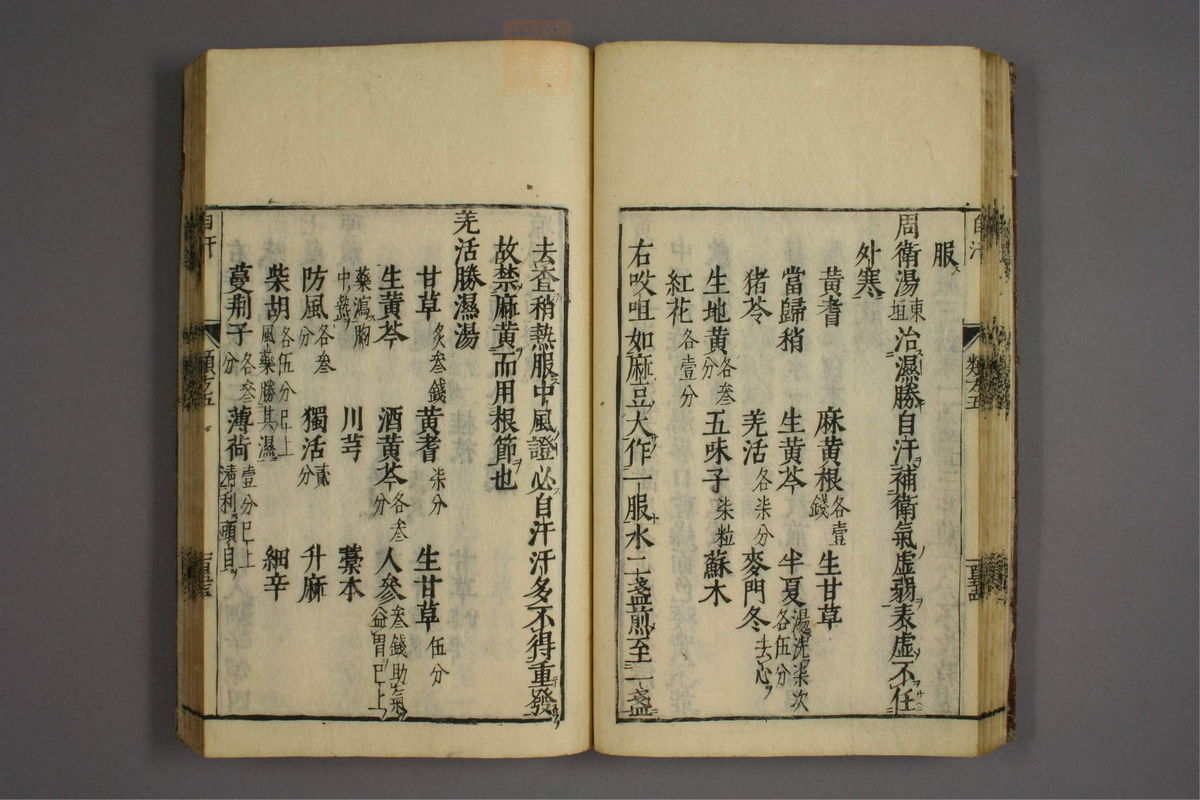 服
周衛湯東垣治濕勝自汗補衛氣虚弱表虚不任
外寒
黃耆 麻黃根各壹錢 生甘草
當歸稍 生黃芩 半夏湯洗柒次各伍分
猪苓 羌活各柒分 麥門冬去心
生地黃各叁分 五味子柒粒 蘇木
紅花各壹分
右㕮咀如麻豆大作一服水二盞煎至一盞
去查稍熱服中風證必自汗汗多不得重發
故禁麻黃而用根節也
羌活勝濕湯
甘草炙叁錢 黃耆柒分 生甘草伍分
生黃芩 酒黃芩各叁分 人參叁錢助氣益胃已上
藥瀉胸中熱 川芎 藁本
防風各叁分 獨活貳分 升麻
柴胡各伍分已上風藥勝其濕 細辛
蔓荆子各叁分 薄荷壹分已上清利頭目
自汗